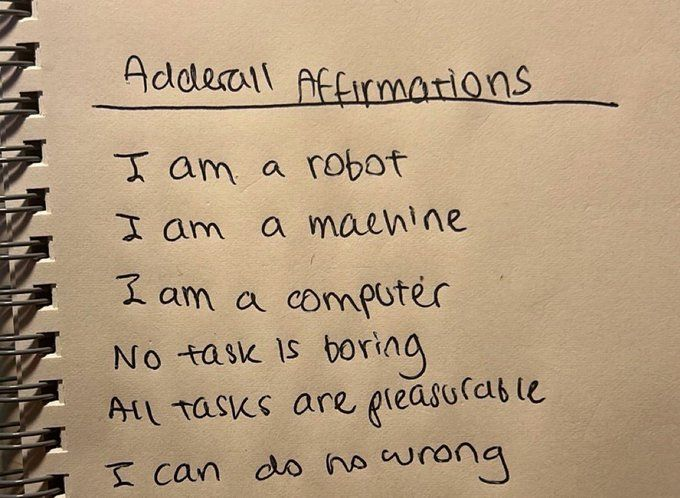 Adderall Affirmations
I am a robot
I am a machine
I am a computer
No task is boring
All tasks are pleasurable
I can do no wrong